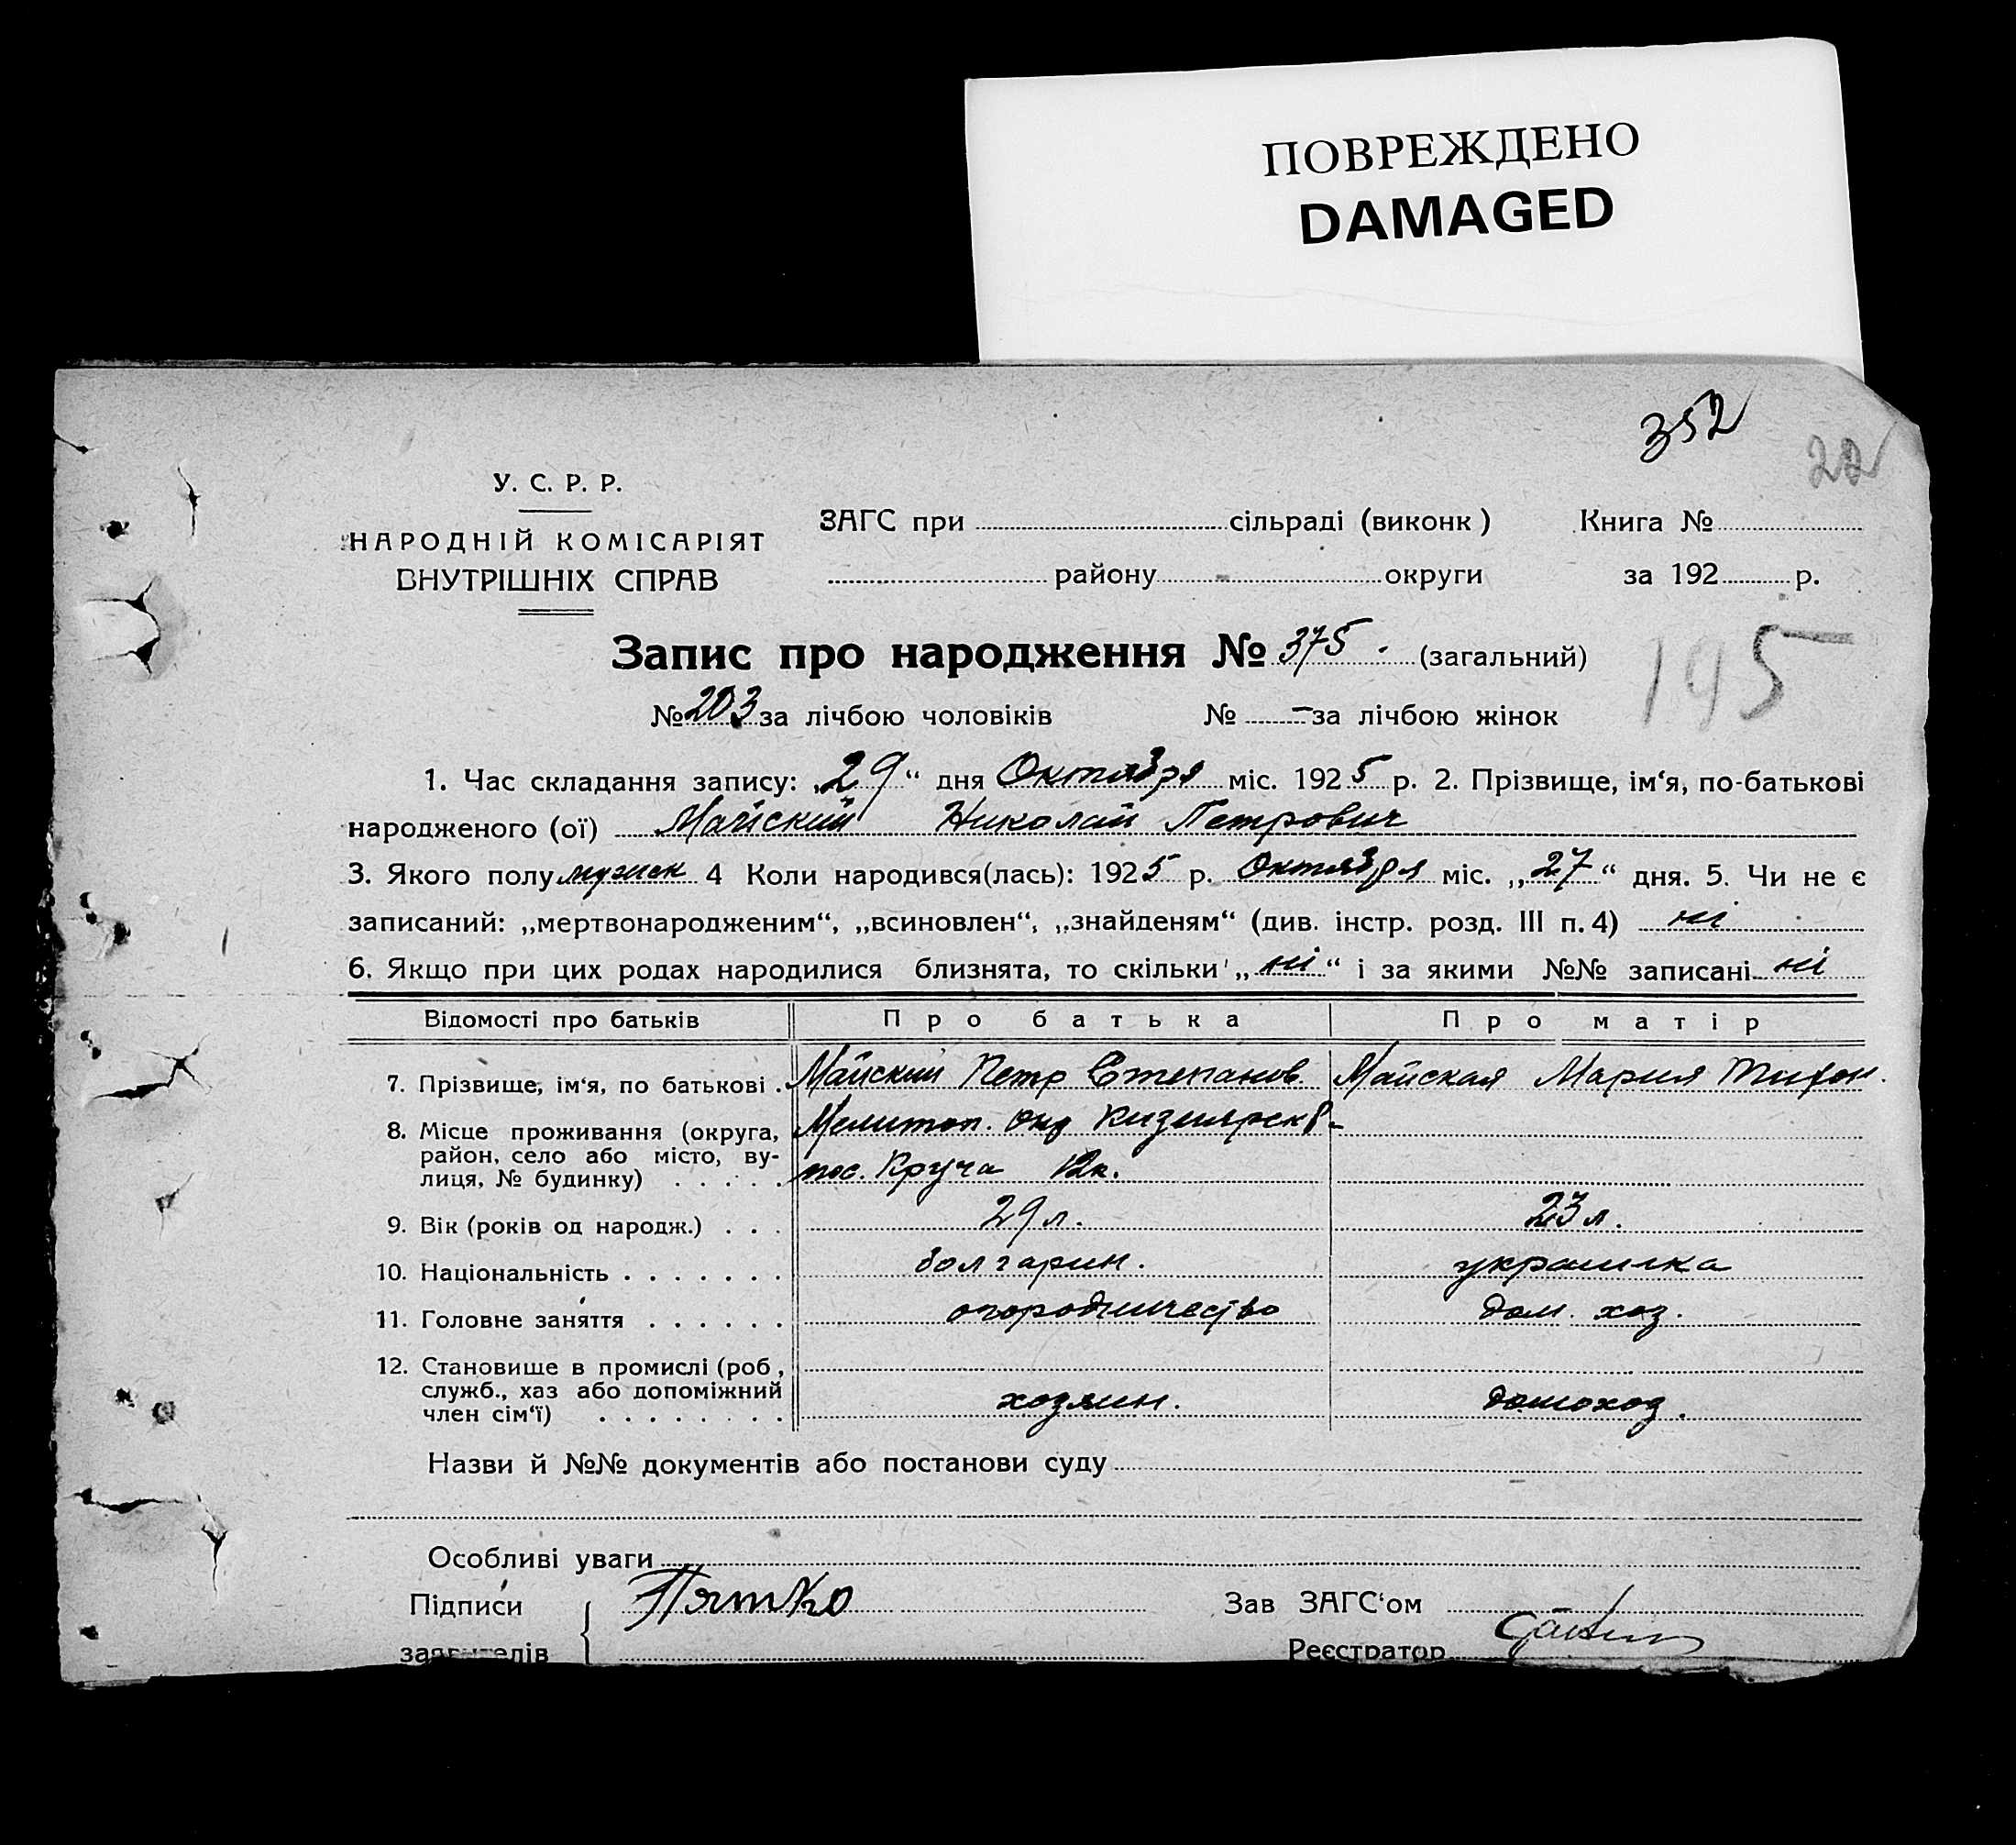 ПОВРЕЖДЕНО
DAMAGED
352
22
У. С. Р. Р.
НАРОДНІЙ КОМІСАРІЯТ
ВНУТРІШНІХ СПРАВ
ЗАГС при сільраді (виконк) Книга №
району округи за 192 р.
Запис про народження № 375. (загальний)
195
№ 203 за лічбою чоловіків № - за лічбою жінок
1. Час складання запису: „29“ дня Октября міс. 1925 р. 2. Прізвище, ім‘я, по-батькові
народженого (ої) Майский Николай Петрович
3. Якого полу мужск 4 Коли народився(лась): 1925 р. Октября міс. „27“ дня. 5. Чи не є
записаний: „мертвонародженим“, „всиновлен“, „знайденям“ (див. інстр. розд. III п. 4) ні
6. Якщо при цих родах народилися близнята, то скільки „ні“ і за якими №№ записані ні
Відомості про батьків Про батька Про матір
7. Прізвище, ім‘я, по батькові . Майский Петр Степанов. Майская Мария Тихон.
8. Місце проживання (округа, Мелитоп. Окр Кизиярск
район, село або місто, ву-
лиця, № будинку) . . . . . пос. Круча 12к.
9. Вік (років од народж.) . . . 29 л. 23 л.
10. Національність . . . . . . . болгарин. украинка
11. Головне заняття . . . . . . огородничество дом. хоз.
12. Становище в промислі (роб,
служб., хаз або допоміжний
член сім‘ї) . . . . . . . . хозяин. домохоз.
Назви й №№ документів або постанови суду
Особливі уваги
Підписи Пятко Зав ЗАГС‘ом
заявителів Реєстратор